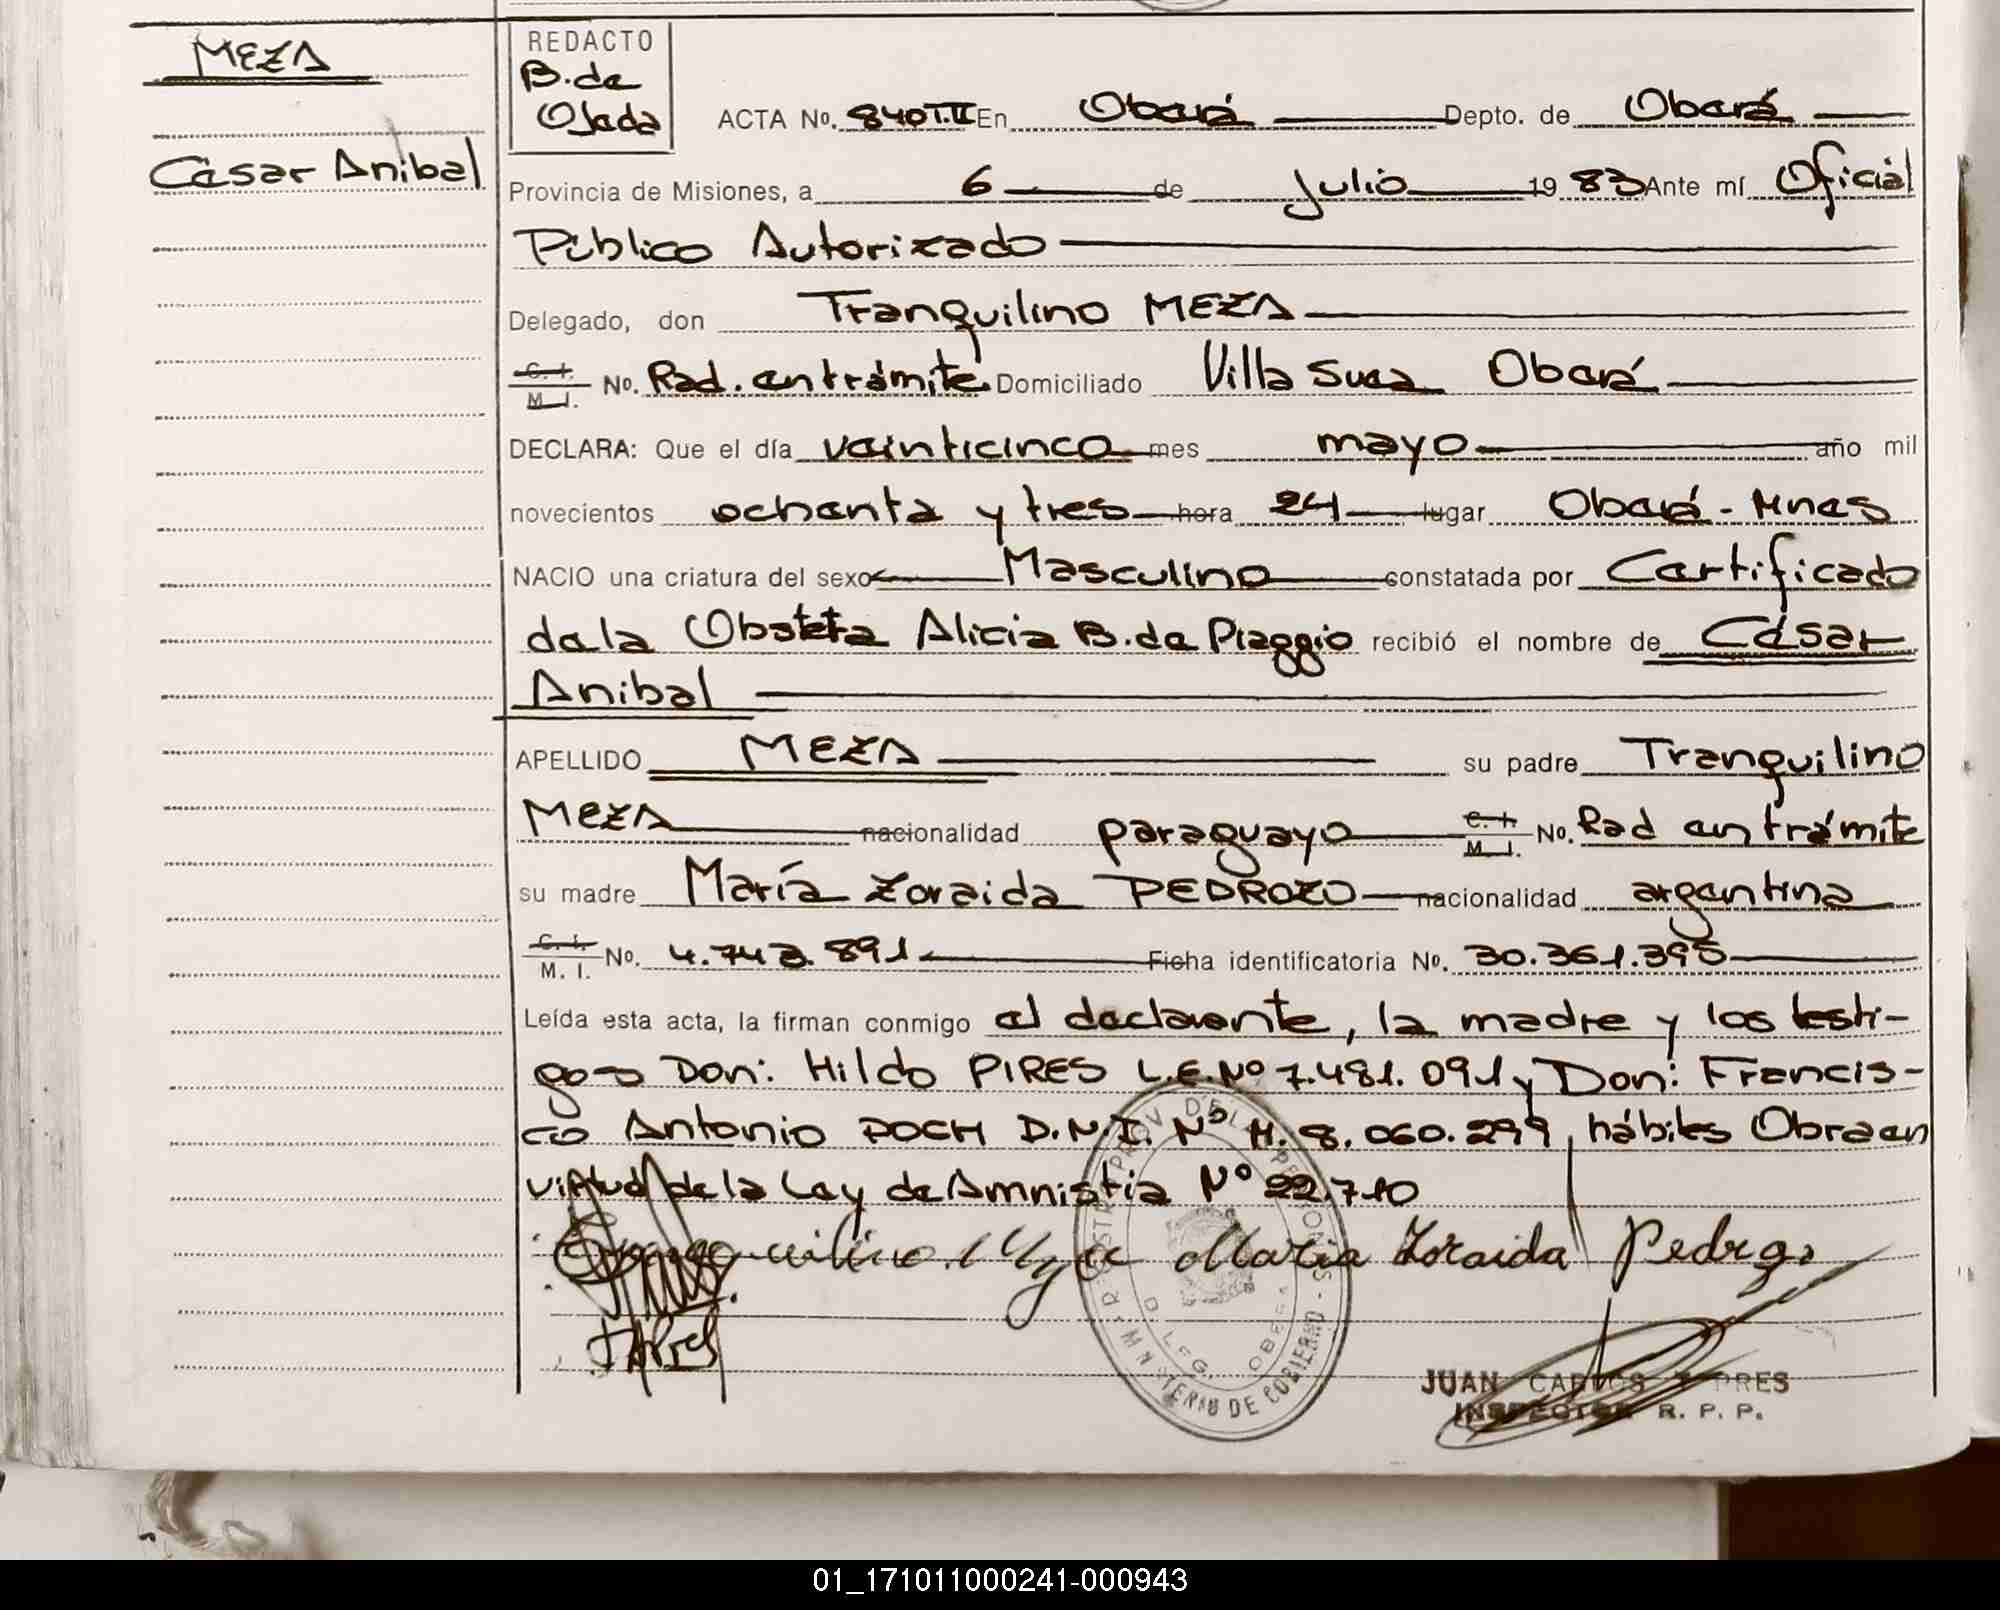 MEZA
César Anibal
REDACTO
B. de
Ojeda
ACTA No. 840 T.II En Oberá Depto. de Oberá
Provincia de Misiones, a 6 de Julio 19 83 Ante mí Oficial
Público Autorizado
Delegado, don Tranquilino MEZA
C. I. M. I. No. Rad. en trámite Domiciliado Villa Suea Oberá
DECLARA: Que el día veinticinco mes mayo año mil
novecientos ochenta y tres hora 24 lugar Oberá - Mnes
NACIO una criatura del sexo Masculino constatada por Certificado
de la Obsteta Alicia B. de Piaggio recibió el nombre de César
Anibal
APELLIDO MEZA su padre Tranquilino
MEZA nacionalidad paraguayo C. I. M. I. No. Rad en trámite
su madre María Zoraida PEDROZO nacionalidad argentina
C. I. M. I. No. 4.743.891 Ficha identificatoria No. 30.361.395
Leída esta acta, la firman conmigo el declarante, la madre y los testi-
gos Don: Hildo PIRES L.E. Nº 7.481.091 y Don: Francis-
co Antonio POCH D.N.I. Nº M. 8.060.299, hábiles Obra en
virtud de la Ley de Amnistia Nº 22.710
Tranquilino Meza Maria Zoraida Pedrozo
JUAN CARLOS
INSPECTOR R. P. P.
01_171011000241-000943